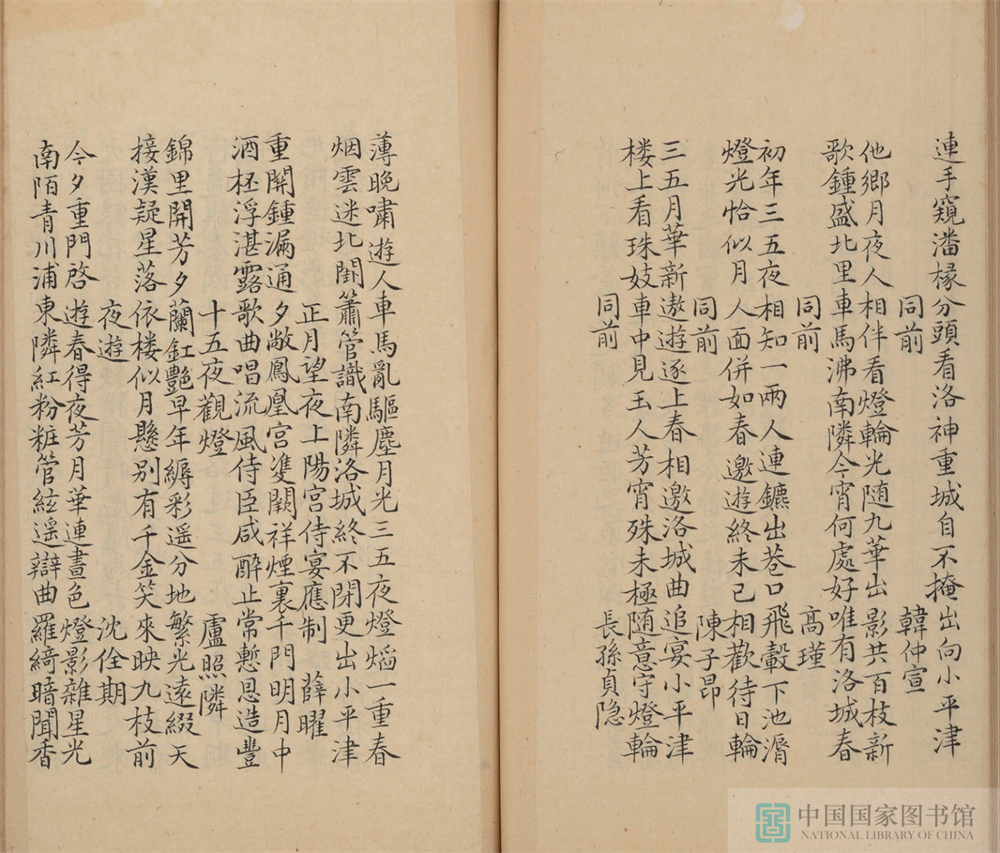 連手窺潘椽分頭看洛神重城自不掩出向小平津
同前 韓仲宣
他鄉月夜人相伴看燈輪光随九華出影共百枝新
歌鍾盛北里車馬沸南隣今宵何處好唯有洛城春
同前 高瑾
初年三五夜相知一兩人連鑣出巷口飛轂下池漘
燈光恰似月人面併如春遨遊終未已相歡待日輪
同前 陳子昂
三五月華新遨遊逐上春相邀洛城曲追宴小平津
楼上看珠妓車中見玉人芳宵殊未極随意守燈輪
同前 長孫貞隐
薄晚嘯遊人車馬亂驅塵月光三五夜燈熖一重春
烟雲迷北閈簫管識南隣洛城終不閉更出小平津
正月望夜上陽宫侍宴應制 薛曜
重開鍾漏通夕敞鳳凰宫雙闕祥煙裏千門明月中
酒杯浮湛露歌曲唱流風侍臣咸醉止常慙恩造豐
十五夜觀燈 盧照隣
錦里開芳夕蘭釭艶早年縟彩遥分地繁光遠綴天
接漢疑星落依楼似月懸别有千金笑來映九枝前
夜遊 沈佺期
今夕重門啓遊春得夜芳月華連晝色燈影雜星光
南陌青川浦東隣紅粉粧管絃遥辯曲羅綺暗聞香
中国国家图书馆
NATIONAL LIBRARY OF CHINA